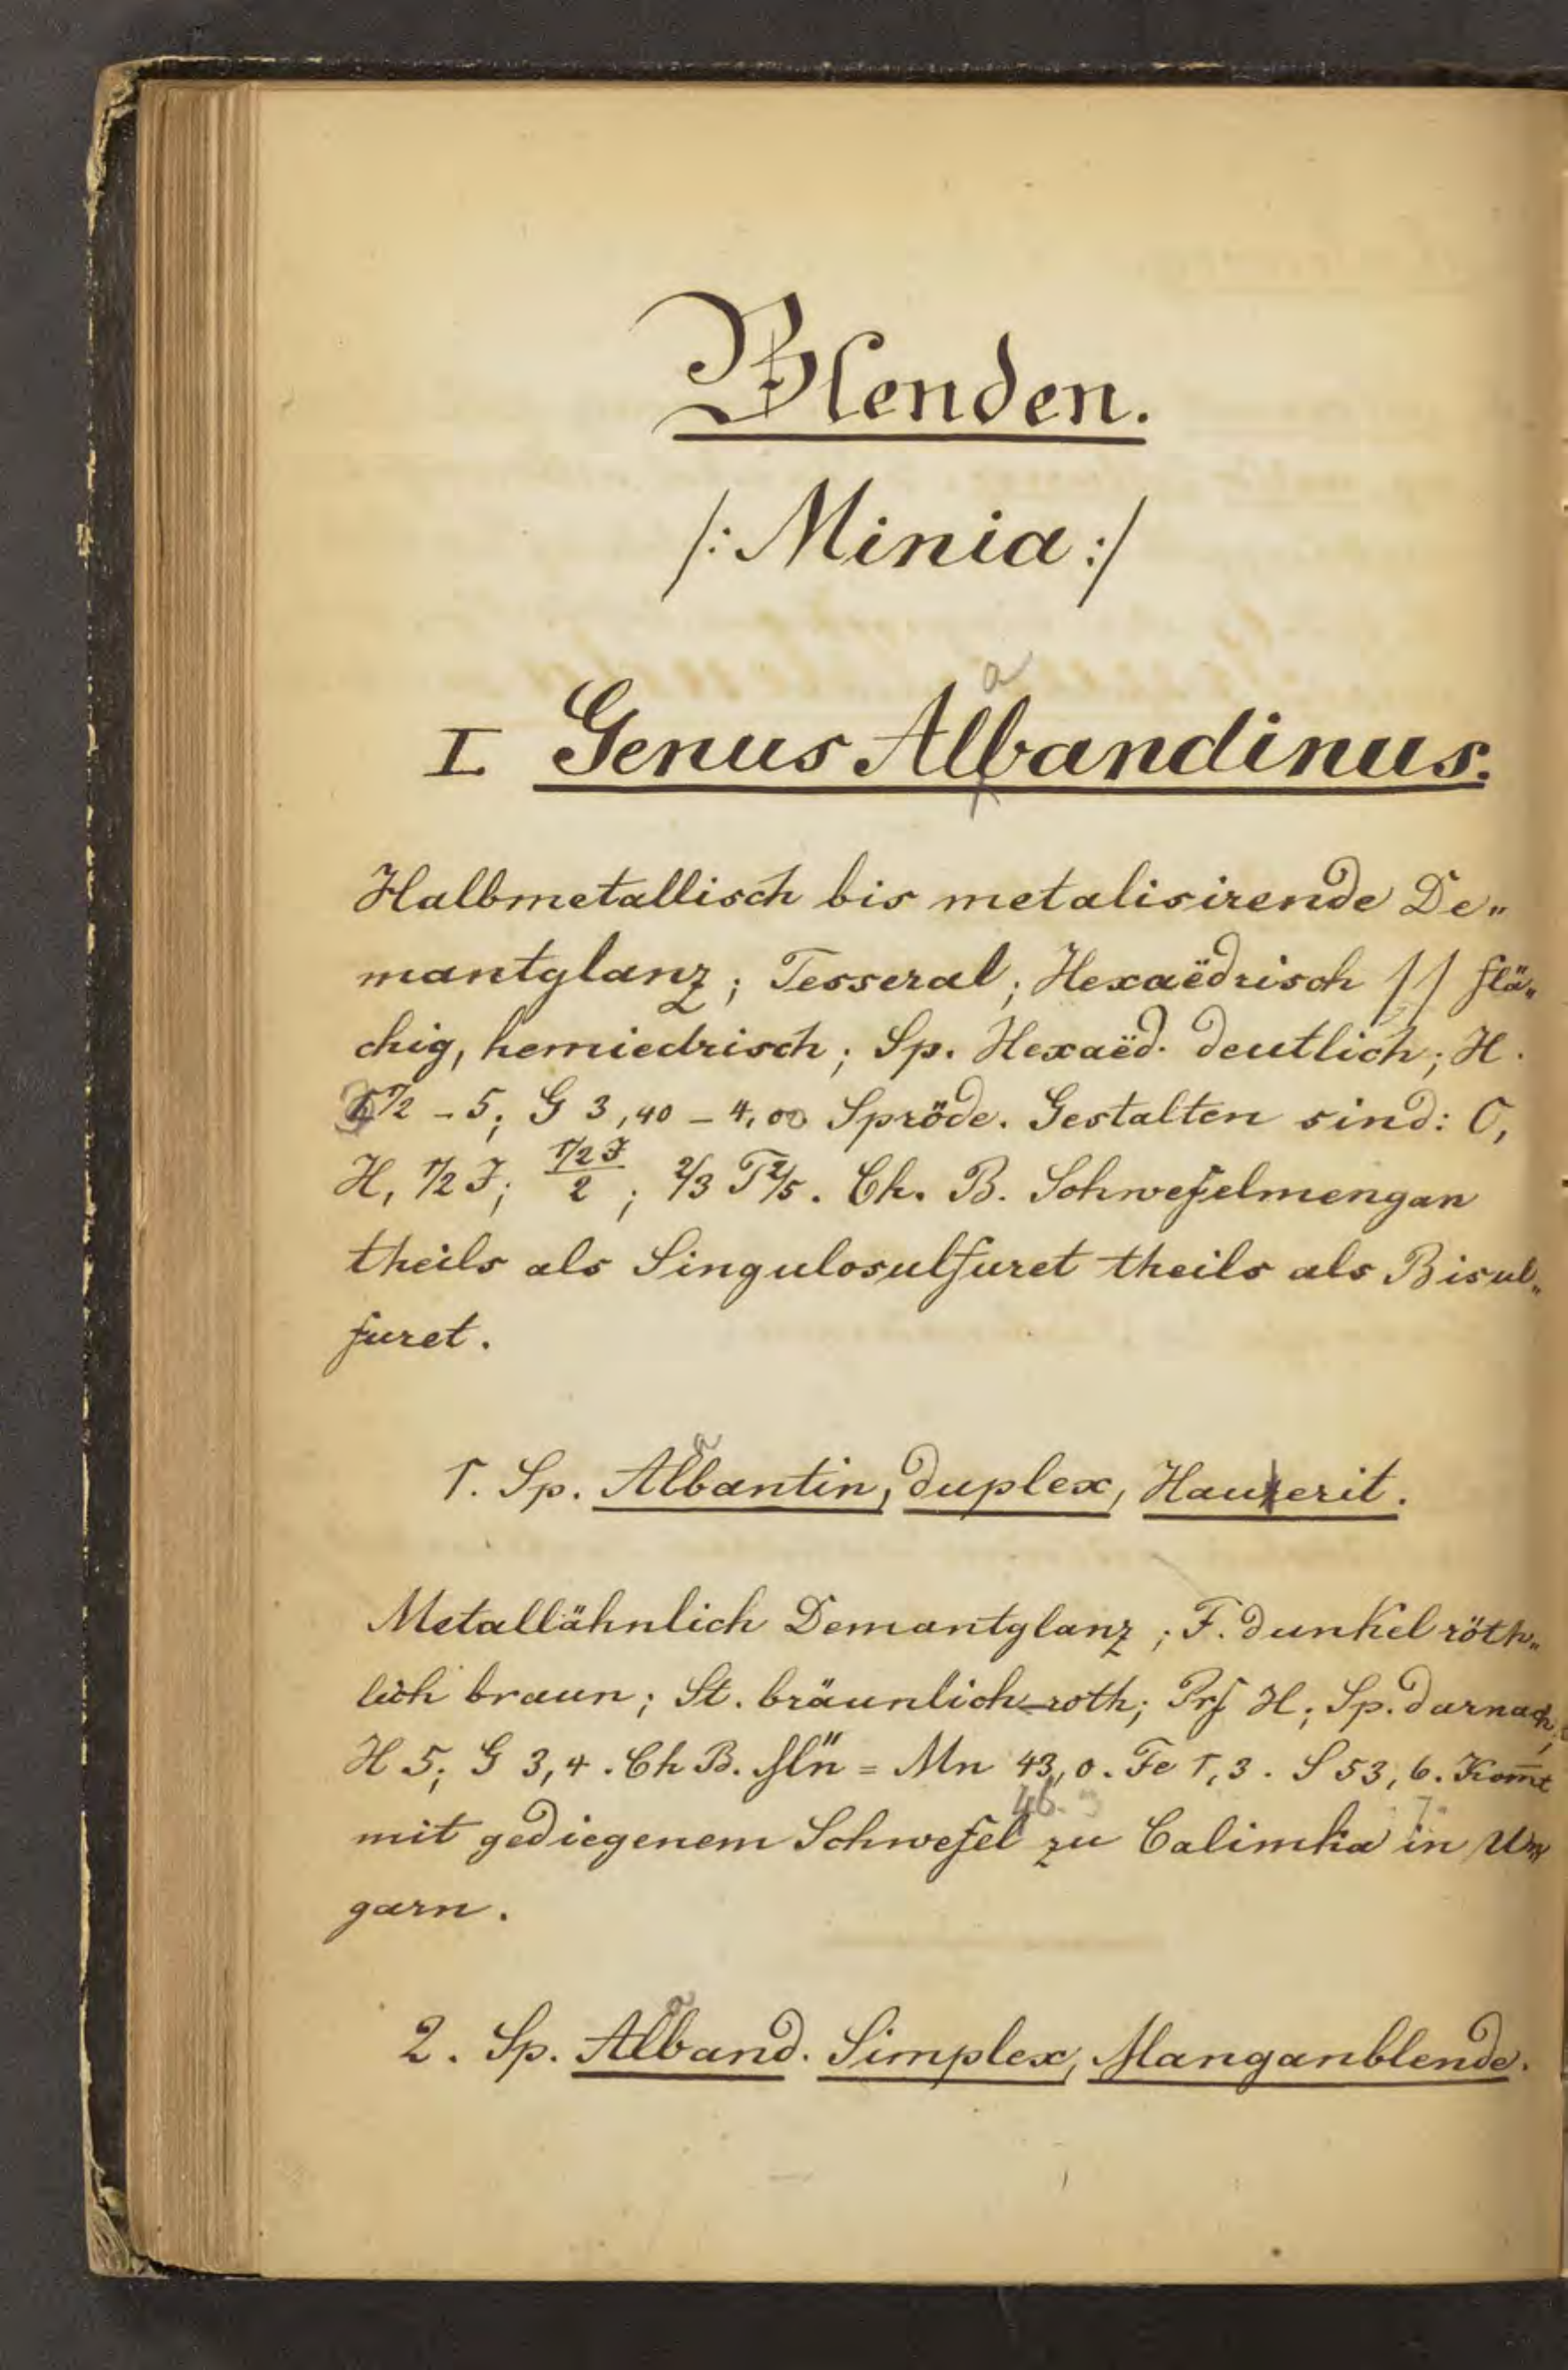 Blenden.
/: Minia :/
a
I Genus Albandinus.
Halbmetallisch bis metalisirende De„
mantglanz; Tesseral; Hexaëdrisch // flä„
chig, hemiedrisch; Sp. Hexaëd. deutlich; H.
1/2 – 5; G 3,40 – 4,00 Spröde. Gestalten sind: O,
H, 1/2 J; 1/2 J/2; 2/3 T 2/5. Ch. B. Schwefelmengan
theils als Singulosulfuret theils als Bisul„
furet.
a
1. Sp. Albantin, duplex, Hauerit.
Metallähnlich Demantglanz; F. dunkel röth„
lich braun; St. bräunlich-roth; Prf H; Sp. darnach;
H 5; G 3,4. Ch B. = Mn 43,0. Fe 1,3. S 53,6. Kom̅t
46.3
mit gediegenem Schwefel zu Calimka in Un
garn.
a
2. Sp. Alband. Simplex, Manganblende.